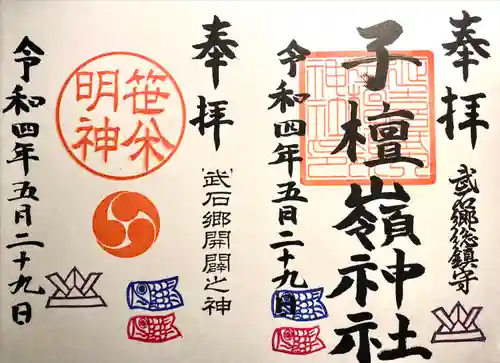 奉拝
武石郷総鎮守
子檀嶺神社
令和四年五月二十九日
奉拝
武石郷開闢之神
笹
明神
令和四年五月二十九日